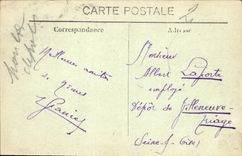 CARTE POSTALE
2
Correspondance
Adresse
Monsieur
Albert Laporte
employé
Dépôt de Villeneuve-
Triage
Seine-&-Oise
Meilleures amitiés
de Gênes